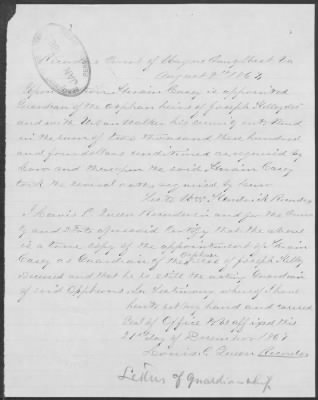 Recorders Court of Wayne County
August 9th 1862
Upon motion Hiram Casey is appointed
Guardian of the orphan heirs of Joseph Kelly decd
and with William Walker his security entered
in the sum of two thousand three hundred
and four dollars conditioned as required by
Law and thereupon the said Hiram Casey
took the several oaths required by Law
Teste Kendrick Recorder
I Lewis C. Queen Recorder in and for the County
ty and State aforesaid Certify that the above
is a true copy of the appointment of Hiram
Orphan
Casey as Guardian of the heirs of Joseph Kelly
Deceased and that he is still the acting Guardian
of said Orphans. In testimony whereof I have
hereto set my hand and caused
Seal of Office to be affixed this
21st day of December 186
Lewis C. Queen Recorder
Letters of Guardianship